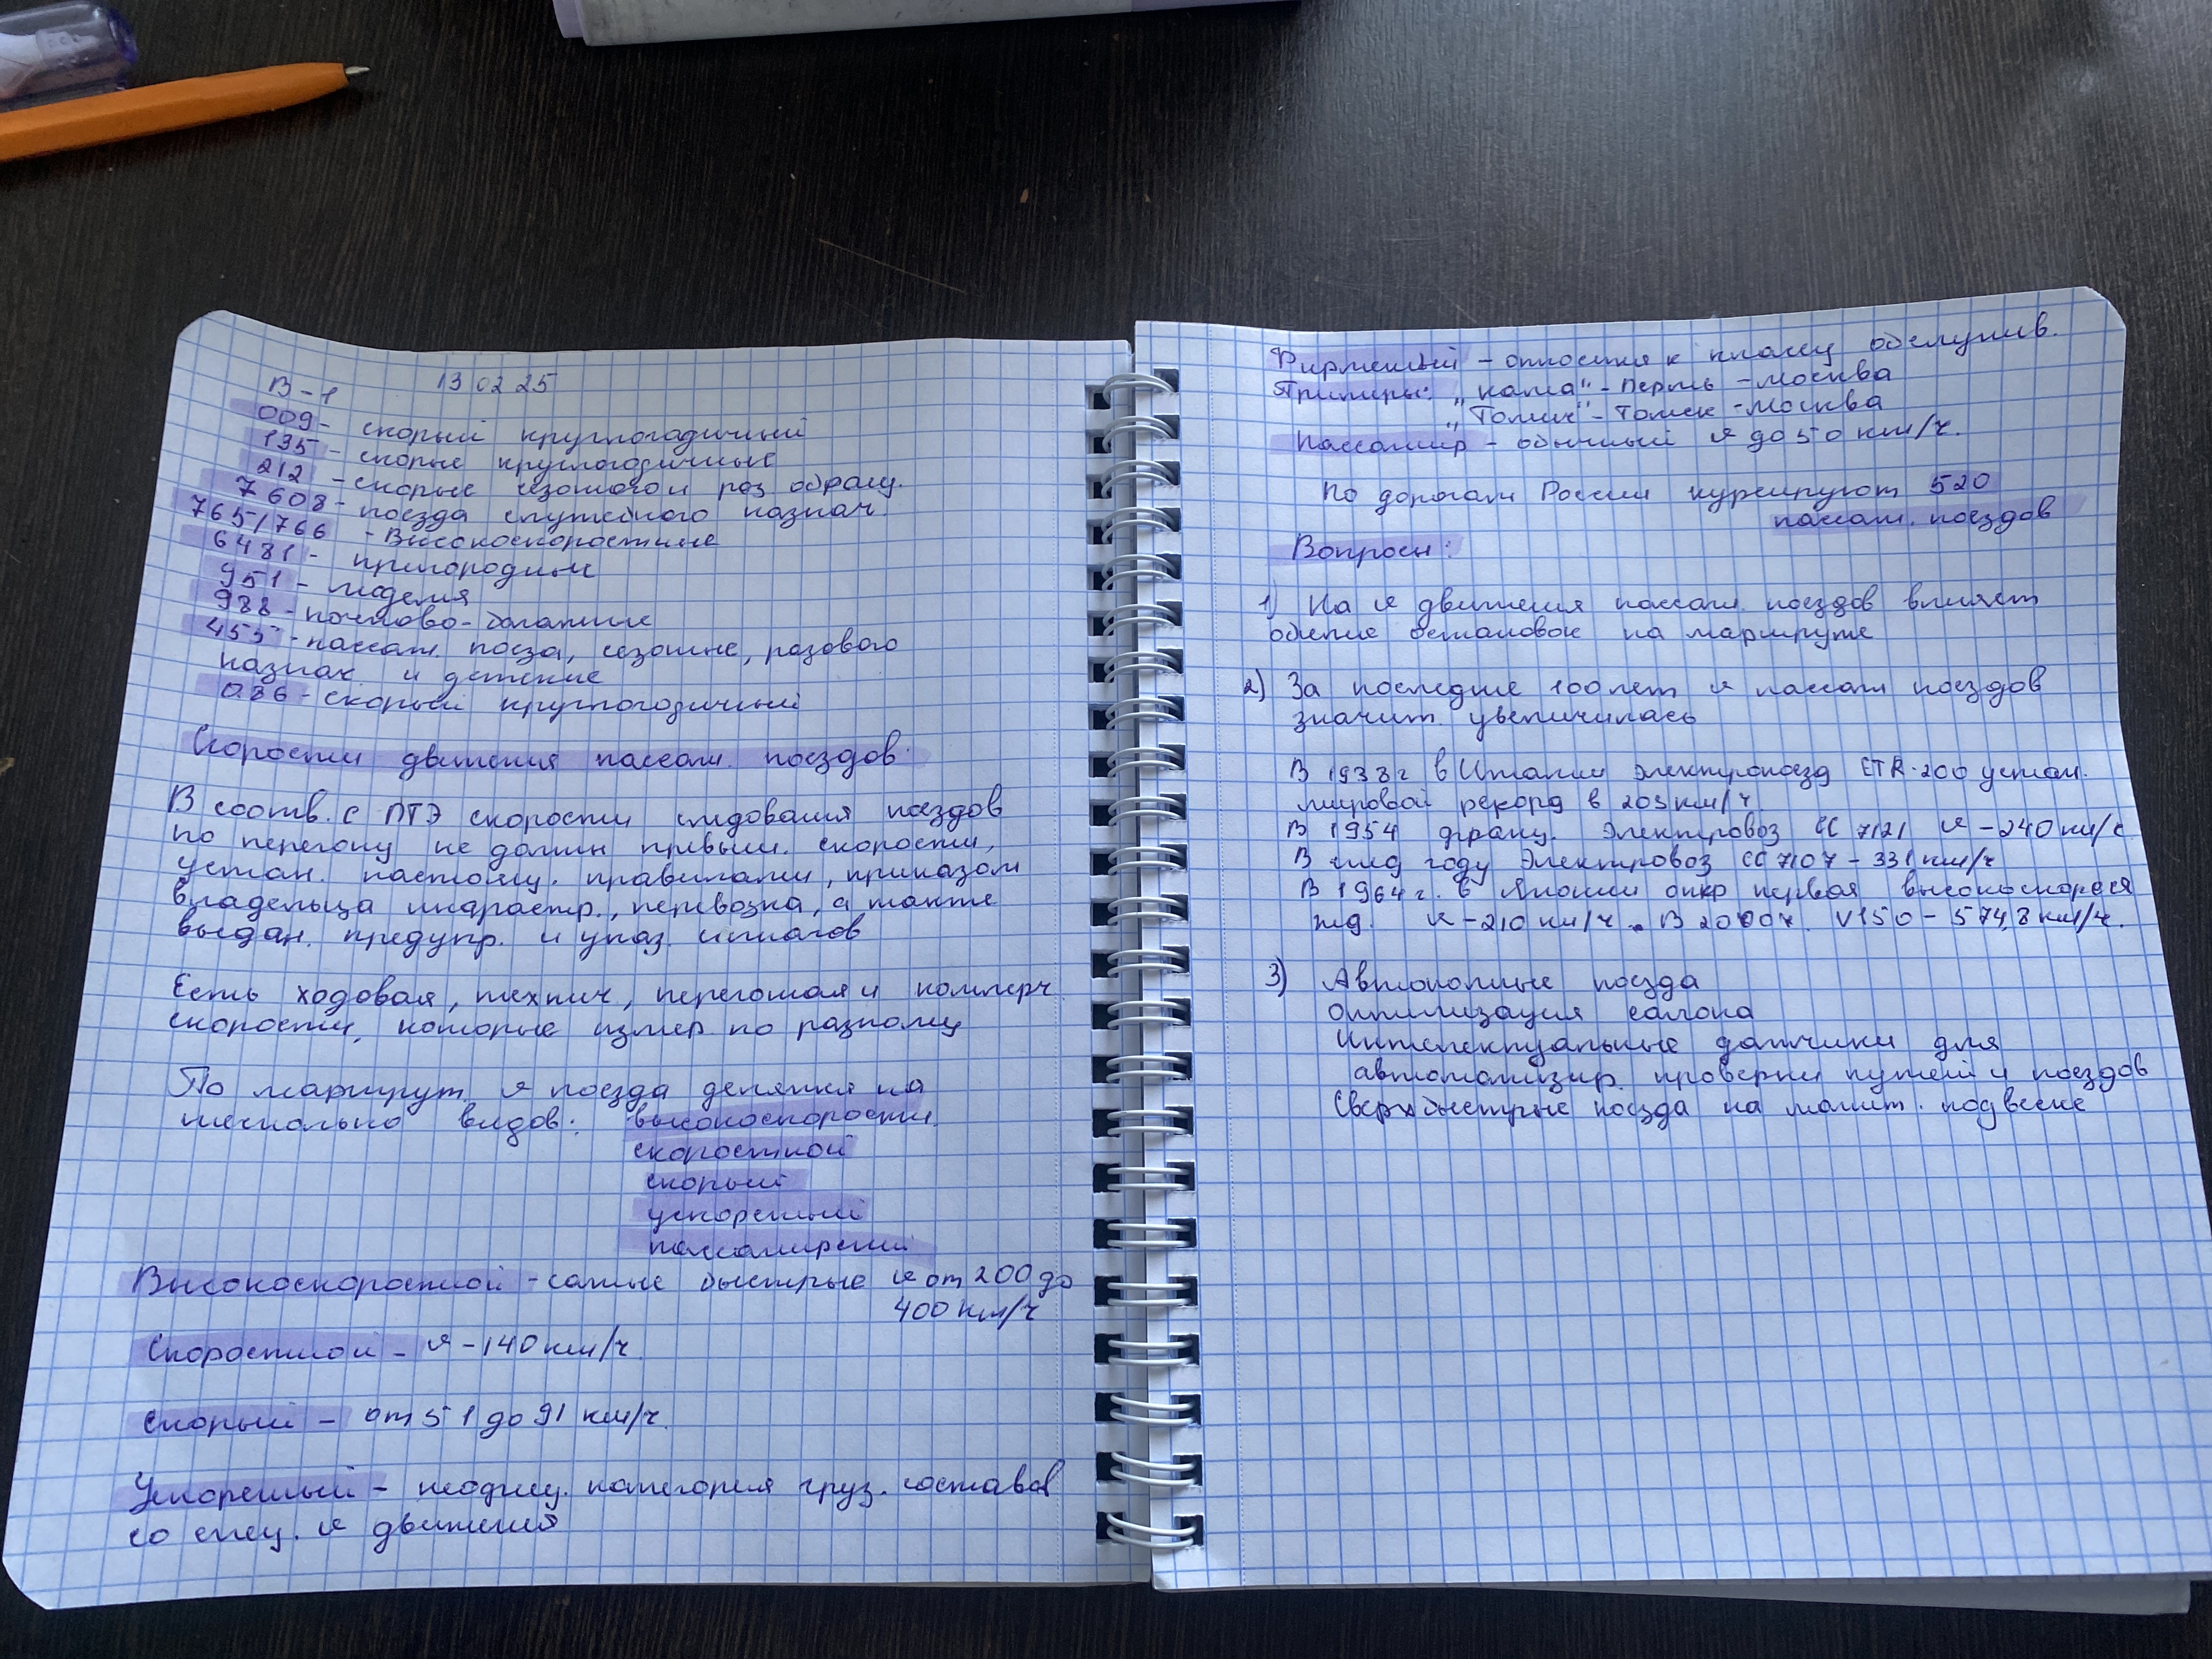 13 02 25
В-1
009- скорый круглогодичный
135 - скорые круглогодичные
212 - скорые сезонного и раз. обращ.
7608 - поезда служебного назнач.
765/766 - Высокоскоростные
6481 - пригородные
951 - людския
988 - почтово-багажные
455 - пассаж. поезда, сезонные, разового
назнач. и детские
086 - скорый круглогодичный
Скорости движения пассаж. поездов.
В соотв. с ПТЭ скорости следования поездов
по перегону не должн превыш. скорости,
устан. настоящ. правилами, приказом
владельца инфрастр., перевозка, а также
выдан. предупр. и указ. сигналов
Есть ходовая, технич, перегонная и коммерч
скорости, которые измер по разному
По маршрут. v поезда делятся на
несколько видов: высокоскоростн.
скоростной
скорый
ускоренный
пассажирский
Высокоскоростной - самые быстрые v от 200 до
400 км/ч
Скоростной - v - 140 км/ч
Скорый - от 51 до 91 км/ч.
Ускоренный - неофиц. категория груз. составов
со спец. v движения
Фирменный - относится к классу обслужив.
Примеры: „Кама" - Пермь - Москва
„Томич" - Томск - Москва
Пассажир - обычный v до 50 км/ч.
По дорогам России курсируют 520
пассаж. поездов
Вопросы:
1) На v движения пассаж. поездов влияет
обилие остановок на маршруте
2) За последние 100 лет v пассаж поездов
значит. увеличилась
В 1938 г в Италии электропоезд ETR-200 устан.
мировой рекорд в 203 км/ч.
В 1954 франц. электровоз CC 7121 v - 240 км/ч
В след году электровоз CC 7107 - 331 км/ч
В 1964 г. в Японии откр первая высокоскорося
жд. v - 210 км/ч. В 2007. V150 - 574,8 км/ч.
3) Автономные поезда
Оптимизация салона
Интелектуальные датчики для
автоматизир. проверки путей и поездов
Сверхбыстрые поезда на магнит. подвеске